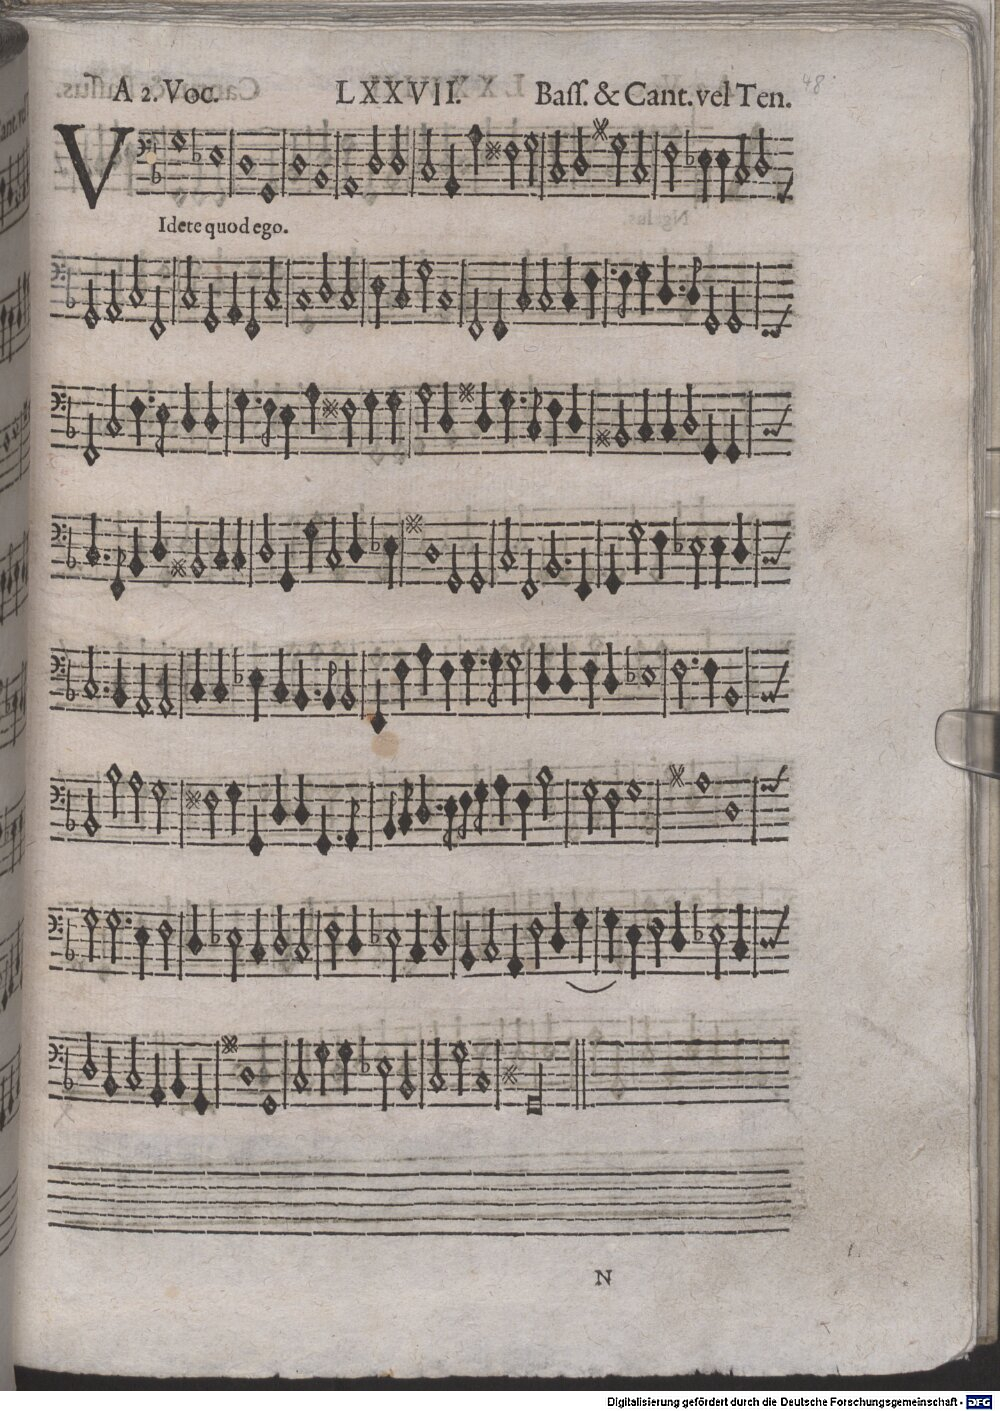 A 2. Voc. LXXVII. Baſſ. & Cant. vel Ten. 48
VIdete quod ego.
N
Digitalisierung gefördert durch die Deutsche Forschungsgemeinschaft - DFG